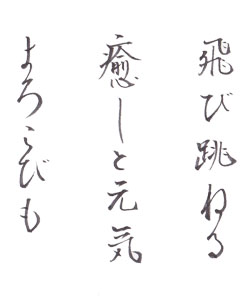 飛び跳ねる
癒しと元気
よろこびも